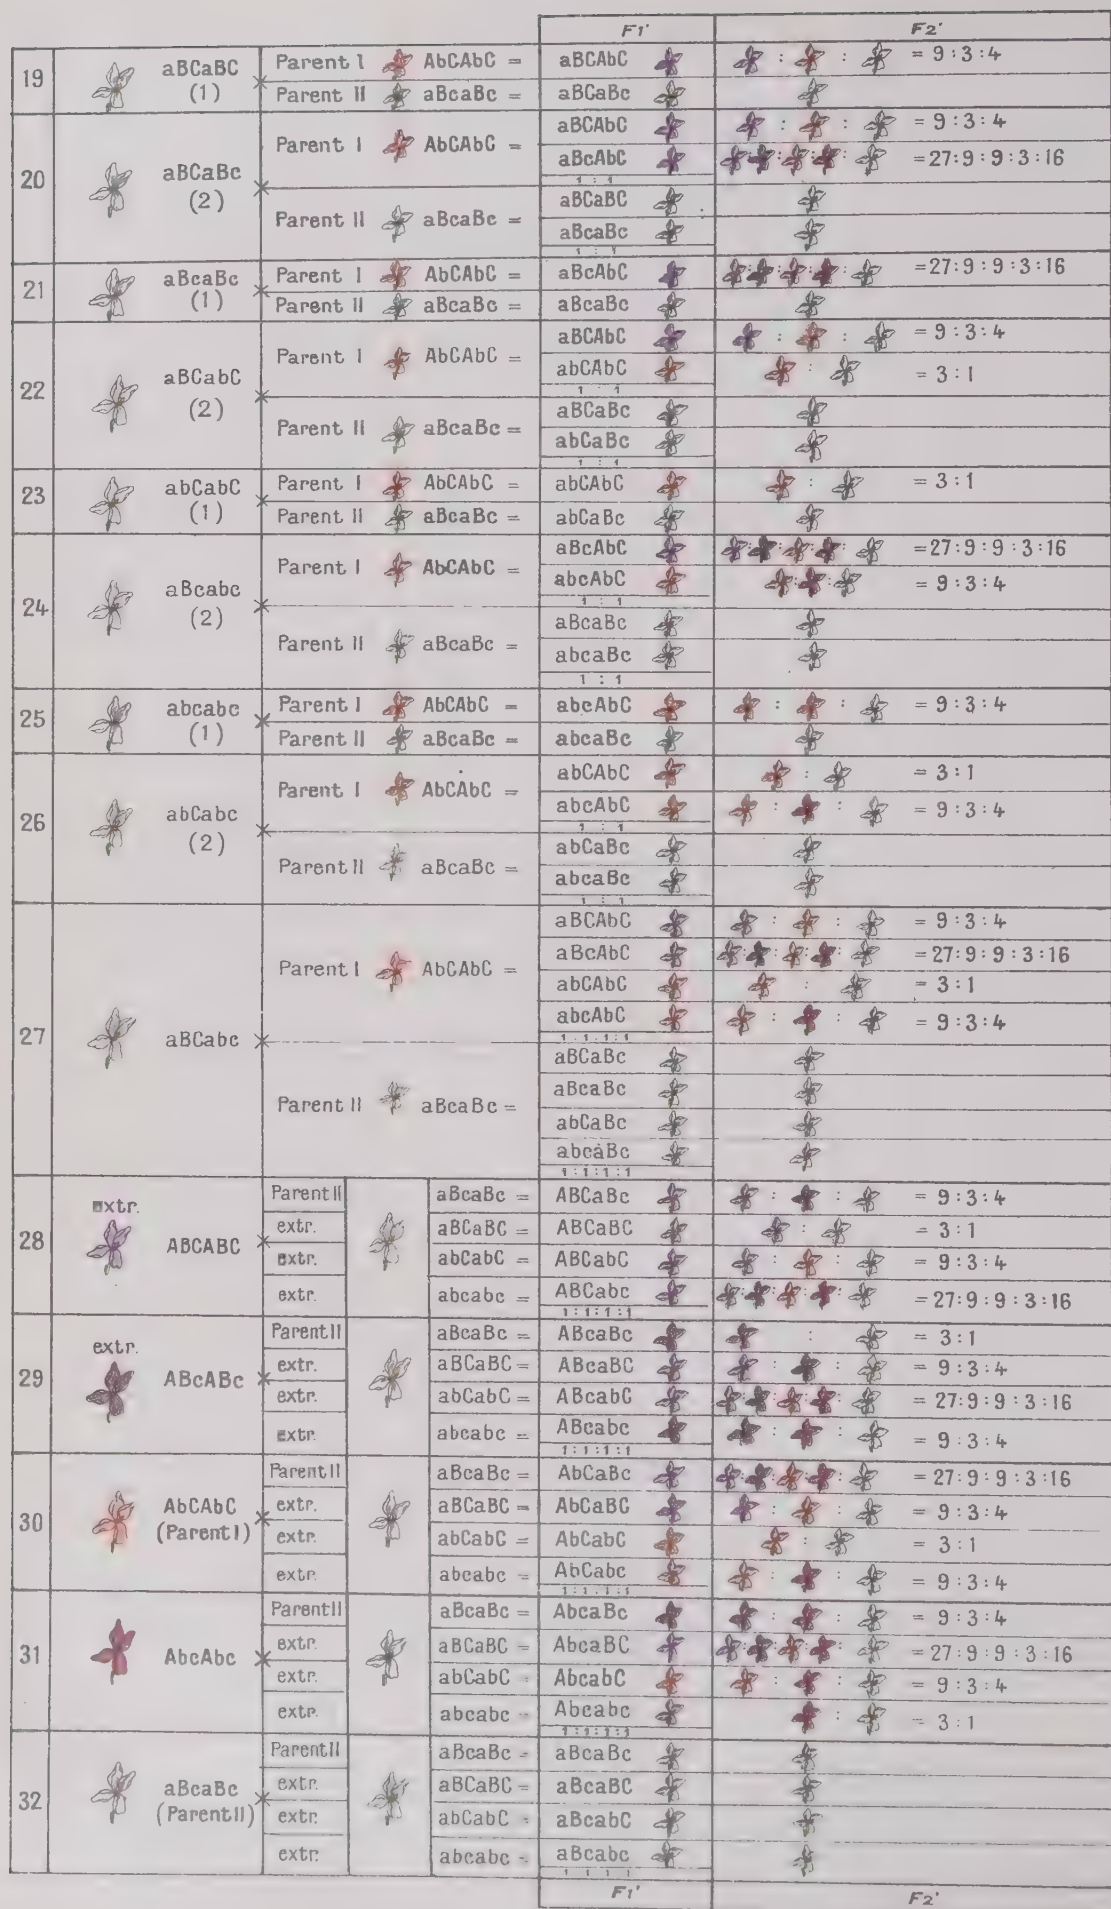 F1' F2'
19 aBCaBC (1) × Parent I AbCAbC = aBCAbC : : = 9:3:4
Parent II aBcaBc = aBCaBc
20 aBCaBc (2) × Parent I AbCAbC = aBCAbC : : = 9:3:4
aBcAbC : : : : = 27:9:9:3:16
1:1
Parent II aBcaBc = aBCaBC
aBcaBc
1:1
21 aBcaBc (1) × Parent I AbCAbC = aBcAbC : : : : = 27:9:9:3:16
Parent II aBcaBc = aBcaBc
22 aBCabC (2) × Parent I AbCAbC = aBCAbC : : = 9:3:4
abCAbC : = 3:1
1:1
Parent II aBcaBc = aBCaBc
abCaBc
1:1
23 abCabC (1) × Parent I AbCAbC = abCAbC : = 3:1
Parent II aBcaBc = abCaBc
24 aBcabc (2) × Parent I AbCAbC = aBcAbC : : : : = 27:9:9:3:16
abcAbC : : = 9:3:4
1:1
Parent II aBcaBc = aBcaBc
abcaBc
1:1
25 abcabc (1) × Parent I AbCAbC = abcAbC : : = 9:3:4
Parent II aBcaBc = abcaBc
26 abCabc (2) × Parent I AbCAbC = abCAbC : = 3:1
abcAbC : : = 9:3:4
1:1
Parent II aBcaBc = abCaBc
abcaBc
1:1
27 aBCabc × Parent I AbCAbC = aBCAbC : : = 9:3:4
aBcAbC : : : : = 27:9:9:3:16
abCAbC : = 3:1
abcAbC : : = 9:3:4
1:1:1:1
Parent II aBcaBc = aBCaBc
aBcaBc
abCaBc
abcaBc
1:1:1:1
28 extr. ABCABC × Parent II aBcaBc = ABCaBc : : = 9:3:4
extr. aBCaBC = ABCaBC : = 3:1
extr. abCabC = ABCabC : : = 9:3:4
extr. abcabc = ABCabc : : : : = 27:9:9:3:16
1:1:1:1
29 extr. ABcABc × Parent II aBcaBc = ABcaBc : = 3:1
extr. aBCaBC = ABcaBC : : = 9:3:4
extr. abCabC = ABcabC : : : : = 27:9:9:3:16
extr. abcabc = ABcabc : : = 9:3:4
1:1:1:1
30 AbCAbC (Parent I) × Parent II aBcaBc = AbCaBc : : : : = 27:9:9:3:16
extr. aBCaBC = AbCaBC : : = 9:3:4
extr. abCabC = AbCabC : = 3:1
extr. abcabc = AbCabc : : = 9:3:4
1:1:1:1
31 AbcAbc × Parent II aBcaBc = AbcaBc : : = 9:3:4
extr. aBCaBC = AbcaBC : : : : = 27:9:9:3:16
extr. abCabC = AbcabC : : = 9:3:4
extr. abcabc = Abcabc : = 3:1
1:1:1:1
32 aBcaBc (Parent II) × Parent II aBcaBc = aBcaBc
extr. aBCaBC = aBcaBC
extr. abCabC = aBcabC
extr. abcabc = aBcabc
1 1 1 1
F1' F2'